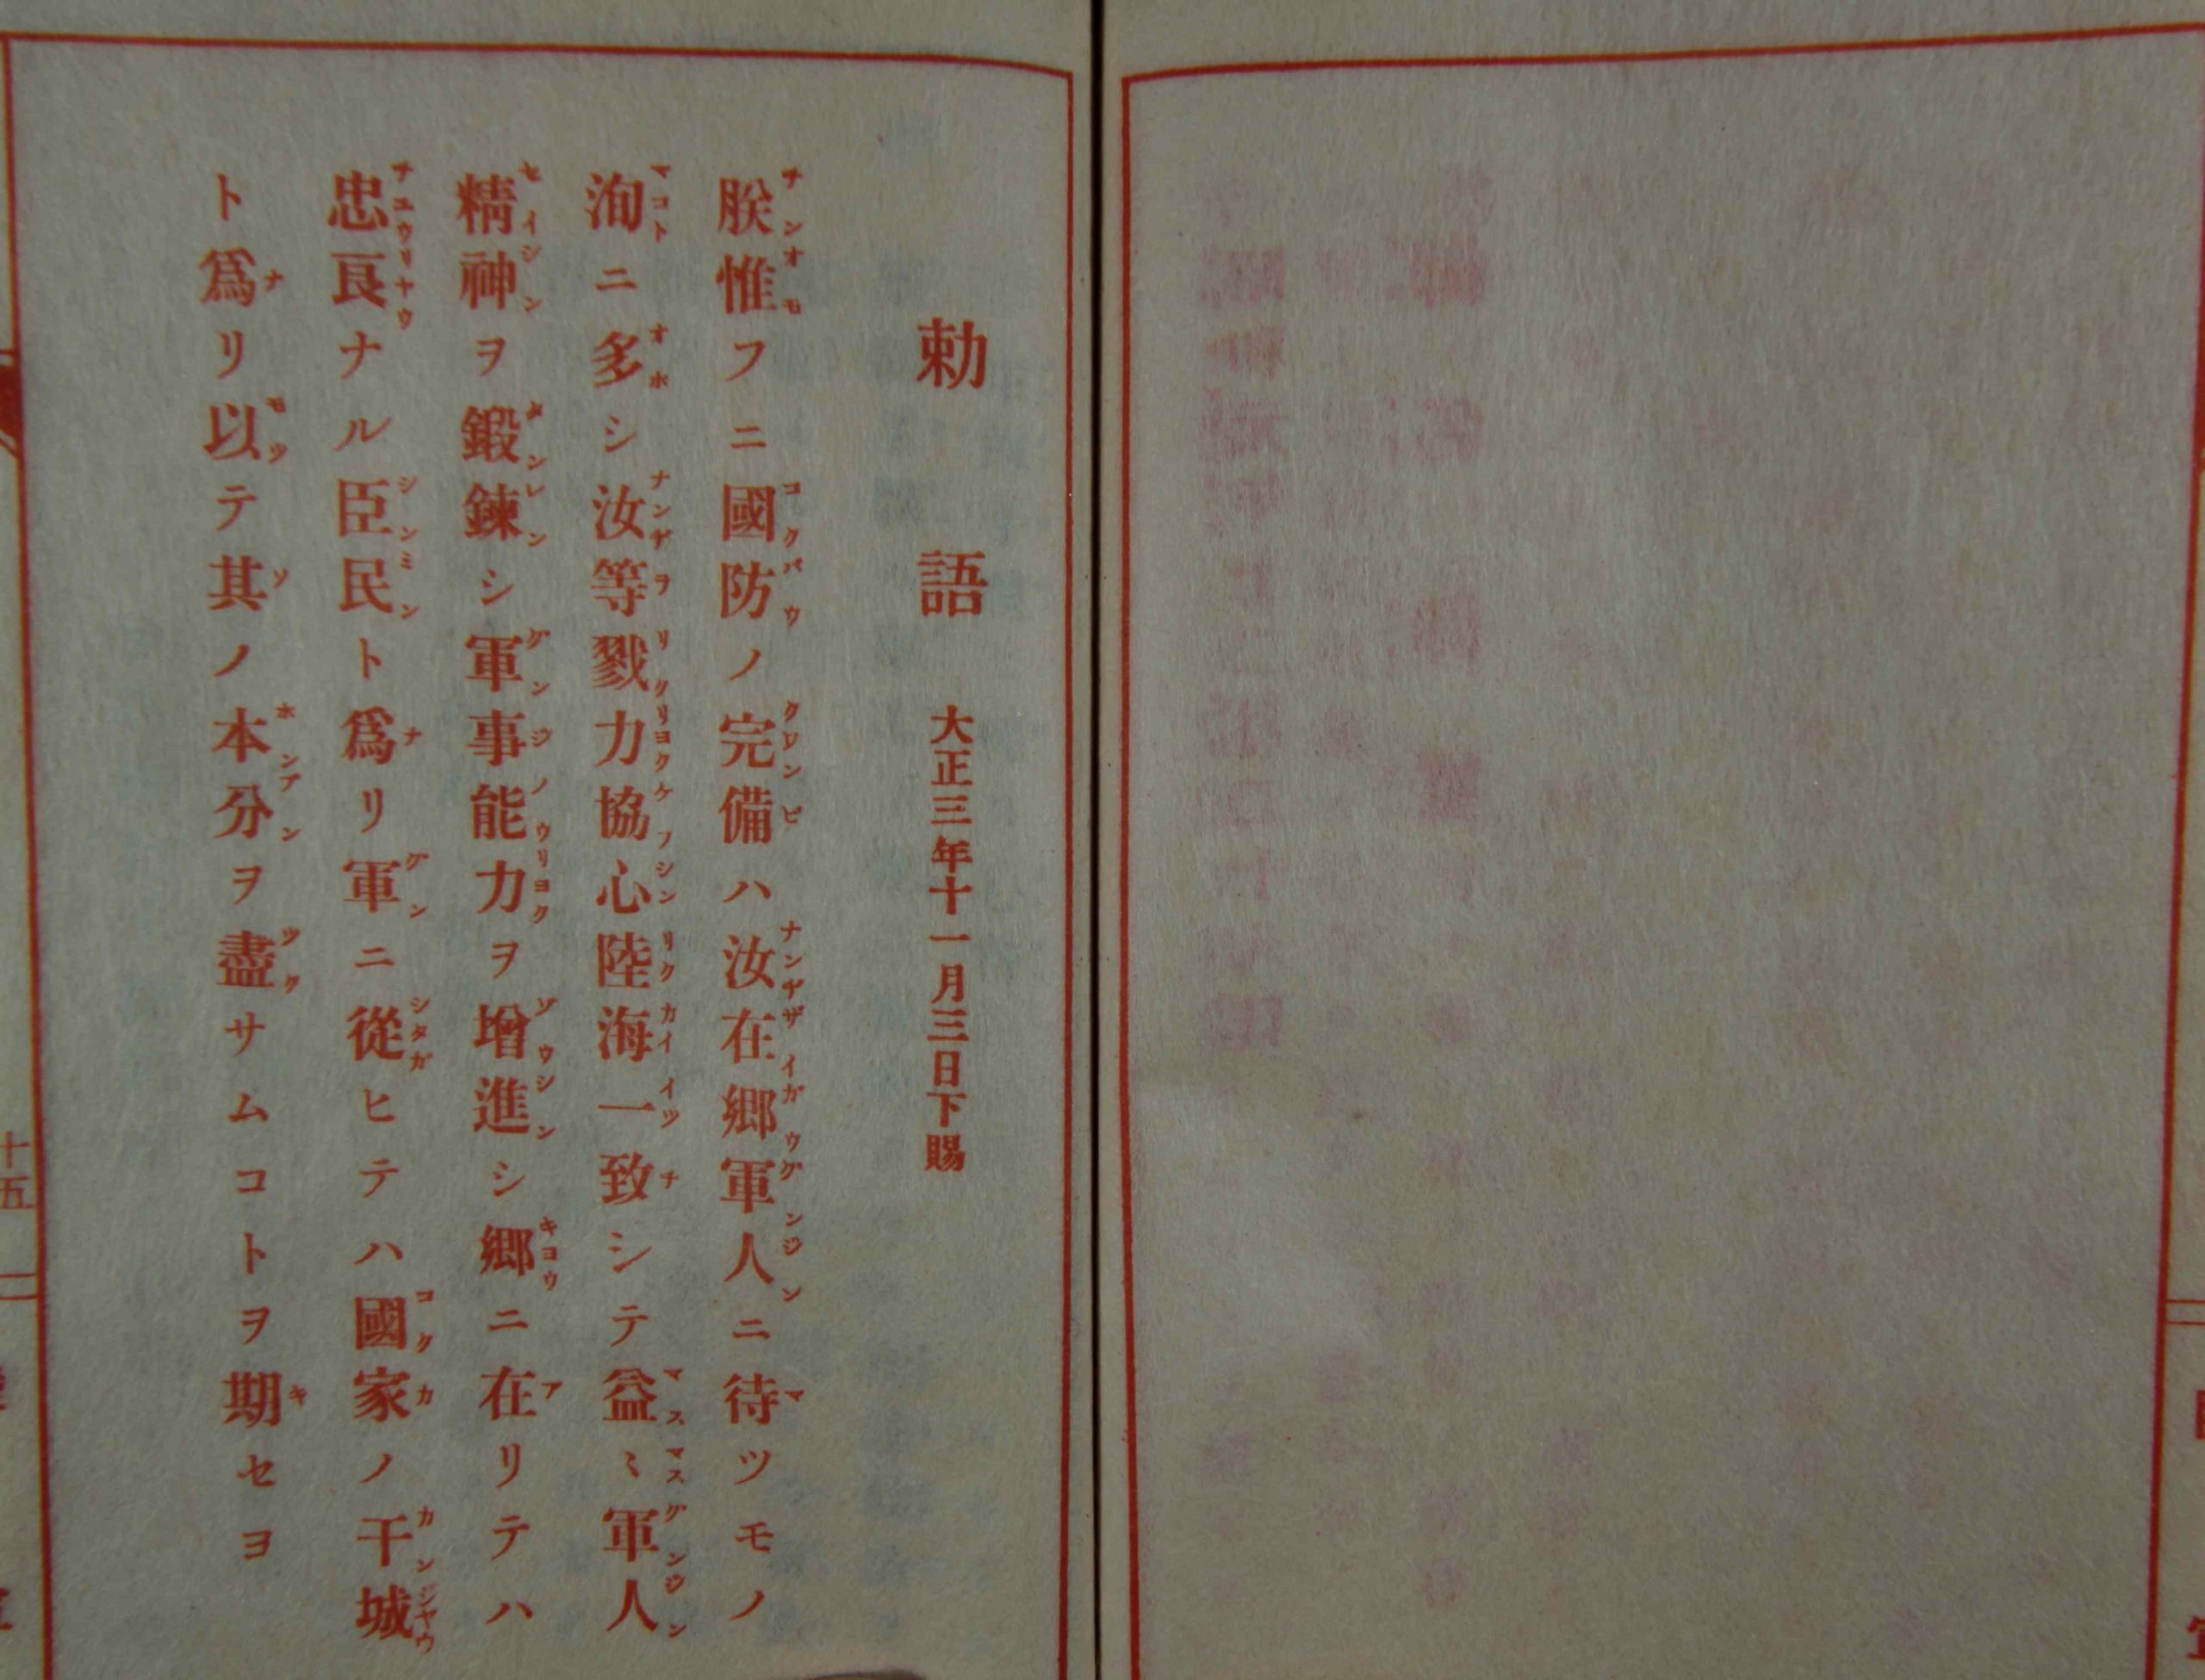 勅語 大正三年十一月三日下賜
朕惟フニ國防ノ完備ハ汝在郷軍人ニ待ツモノ
洵ニ多シ汝等戮力協心陸海一致シテ益〻軍人
精神ヲ鍛錬シ軍事能力ヲ增進シ郷ニ在リテハ
忠良ナル臣民ト爲リ軍ニ從ヒテハ國家ノ干城
ト爲リ以テ其ノ本分ヲ盡サムコトヲ期セヨ
十五